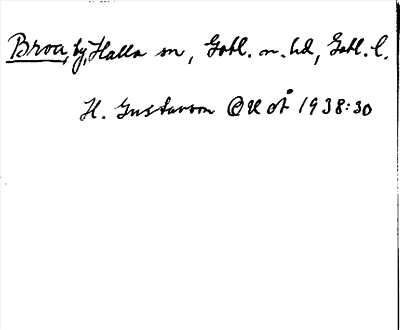 Broa, by, Halla sn, Gotl. n. hd, Gotl. l.
H. Gustavson GU oÅ 1938:30